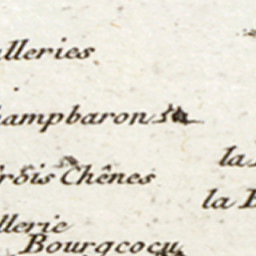 alleries
hampbaron
la
rois Chênes
la B
llerie
Bourgcocu